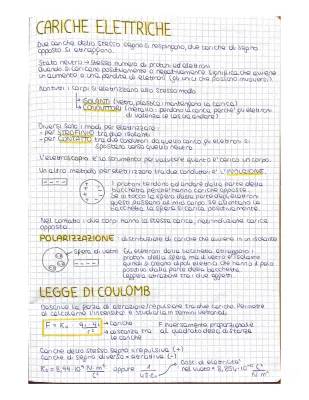 CARICHE ELETTRICHE
Due cariche dello stesso segno si respingono, due cariche di segno
opposto si attraggono.
Stato neutro → stesso numero di protoni ed elettroni
Quando si caricano positivamente o negativamente significa che avviene
un aumento o una perdita di elettroni (gli unici che possono muoversi).
Non tutti i corpi si elettrizzano allo stesso modo
→ ISOLANTI (vetro, plastica: mantengono la carica)
→ CONDUTTORI (metallo: perdono la carica perché gli elettroni
di valenza se
Diversi sono i modi per elettrizzare:
- per STROFINIO tra due isolanti
- per CONTATTO tra due conduttori da quello carico gli elettroni si
spostano verso quello neutro
L'elettroscopio è lo strumento per valutare quanto è carico un corpo.
Un altro metodo per elettrizzare tra due conduttori è l'INDUZIONE.
I protoni tendono ad andare dalla parte della
bacchetta perché hanno cariche opposte.
Se si tocca la sfera dalla parte degli elettroni
questi passano al mio corpo. Se allontano la
bacchetta la sfera si carica positivamente
Nel contatto i due corpi hanno la stessa carica, nell'induzione carica
opposta.
POLARIZZAZIONE: distribuzione di cariche che avviene in un isolante
→ Sfera di vetro
Gli elettroni della bacchetta attraggono i
protoni della sfera ma il vetro è isolante
quindi si creano dipoli elettrici che hanno il polo
positivo dalla parte della bacchetta.
Leggera attrazione tra i due oggetti
LEGGE DI COULOMB
Descrive la forza di attrazione/repulsione tra due cariche. Permette
di calcolarne l'intensità e studiarla in termini vettoriali.
F = K₀ · q₁ · q₂ / r²
→ cariche
→ distanza tra
le cariche
F inversamente proporzionale
al quadrato della distanza
Cariche dello stesso segno = repulsiva (+)
Cariche di segno diverso = attrattiva (-)
K₀ = 8,99·10⁹ N·m²/C² oppure 1/4πε₀
Cost. dielettrica
nel vuoto = 8,854·10⁻¹² C²/N·m²